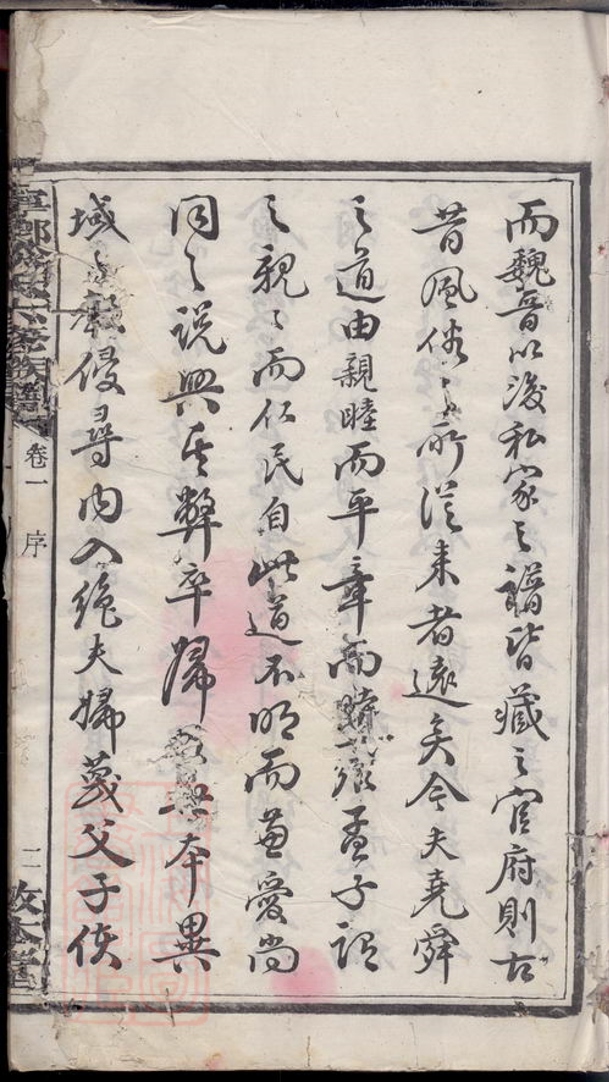 而魏晉以後私家之譜皆藏之官府則古
昔風俗之所從来者遠矣今夫堯舜
之道由親睦而平章而孟子謂
之親〻而仁民自此道不明而兼愛尚
同之說興其弊卒歸本異
域之教侵尋内入絶夫婦蔑父子使
氏六修族譜
卷一
序
二
敦本堂